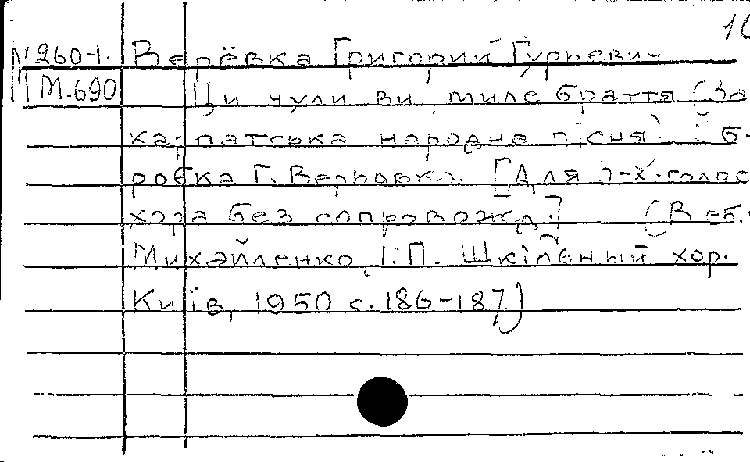 10
N 960-1. Верёвка Григорий Гурьеви-
М.690 Ци чули ви, миле браття (За
карпатська народна пісня)
робка Г. Верьовки. [Для 3-х голос
хора без сопровожд.] (В сб.
Михайленко І.П. Шкільный хор.
Київ, 1950 с.186-187)